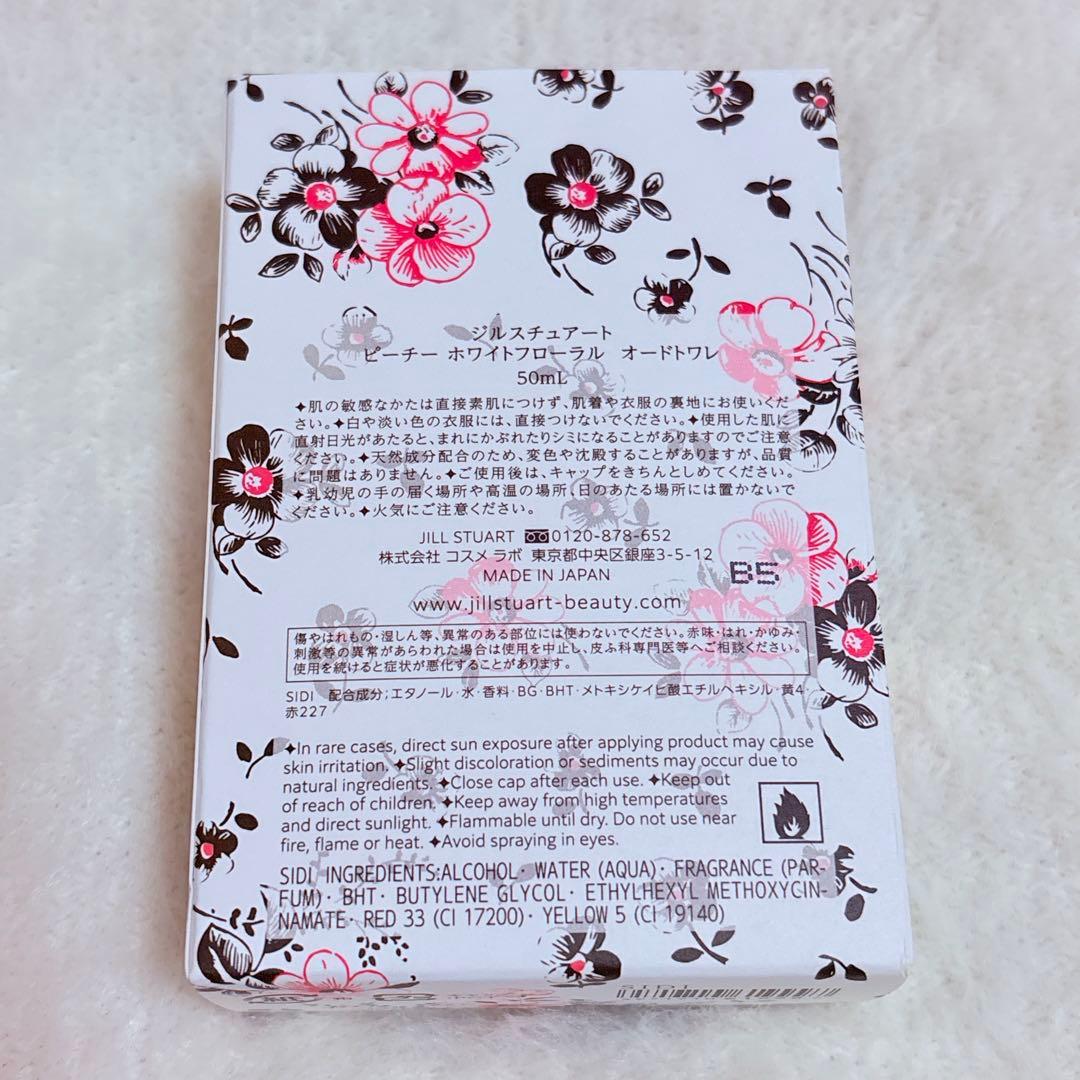 ジルスチュアート
ピーチー ホワイトフローラル オードトワレ
50mL
✦肌の敏感なかたは直接素肌につけず、肌着や衣服の裏地にお使いくだ
さい。✦白や淡い色の衣服には、直接つけないでください。✦使用した肌に
直射日光があたると、まれにかぶれたりシミになることがありますのでご注意
ください。✦天然成分配合のため、変色や沈殿することがありますが、品質
に問題はありません。✦ご使用後は、キャップをきちんとしめてください。
✦乳幼児の手の届く場所や高温の場所、日のあたる場所には置かないで
ください。✦火気にご注意ください。
JILL STUART 0120-878-652
株式会社 コスメ ラボ 東京都中央区銀座3-5-12
MADE IN JAPAN
B5
www.jillstuart-beauty.com
傷やはれもの・湿しん等、異常のある部位には使わないでください。赤味・はれ・かゆみ・
刺激等の異常があらわれた場合は使用を中止し、皮ふ科専門医等へご相談ください。
使用を続けると症状が悪化することがあります。
SIDI 配合成分;エタノール・水・香料・BG・BHT・メトキシケイヒ酸エチルヘキシル・黄4・
赤227
✦In rare cases, direct sun exposure after applying product may cause
skin irritation. ✦Slight discoloration or sediments may occur due to
natural ingredients. ✦Close cap after each use. ✦Keep out
of reach of children. ✦Keep away from high temperatures
and direct sunlight. ✦Flammable until dry. Do not use near
fire, flame or heat. ✦Avoid spraying in eyes.
SIDI INGREDIENTS:ALCOHOL・WATER (AQUA)・FRAGRANCE (PAR-
FUM)・BHT・BUTYLENE GLYCOL・ETHYLHEXYL METHOXYCIN-
NAMATE・RED 33 (CI 17200)・YELLOW 5 (CI 19140)